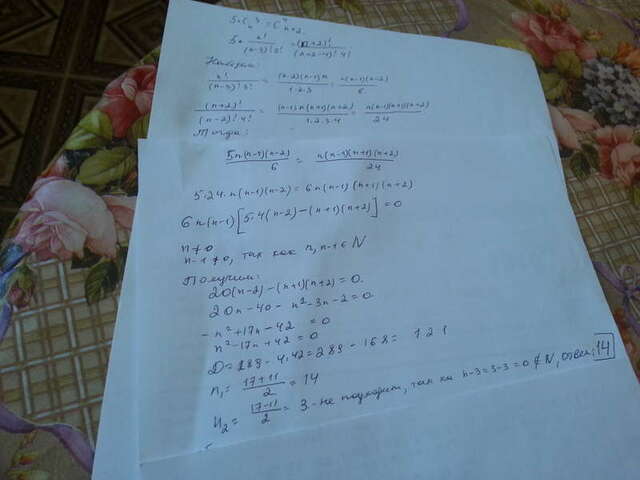 5·C_n^3 = C_{n+2}^4
5· n!/((n-3)! 3!) = (n+2)!/((n+2-4)! 4!)
n!/((n-3)! 3!) = (n-2)(n-1)n/(1·2·3) = n(n-1)(n-2)/6
(n+2)!/((n-2)! 4!) = (n-1)·n(n+1)(n+2)/(1·2·3·4) = n(n-1)(n+1)(n+2)/24
Тогда:
5n(n-1)(n-2)/6 = n(n-1)(n+1)(n+2)/24
5·24·n(n-1)(n-2) = 6n(n-1)(n+1)(n+2)
6n(n-1)[5·4(n-2)-(n+1)(n+2)] = 0
n≠0
n-1≠0, так как n, n-1 ∈ N
Получим:
20(n-2)-(n+1)(n+2)=0.
20n-40-n²-3n-2=0
-n²+17n-42=0
n²-17n+42=0
D=289-4·42=289-168=121
n₁=(17+11)/2=14
n₂=(17-11)/2=3-не подходит, так ка n-3=3-3=0∉N, ответ: 14